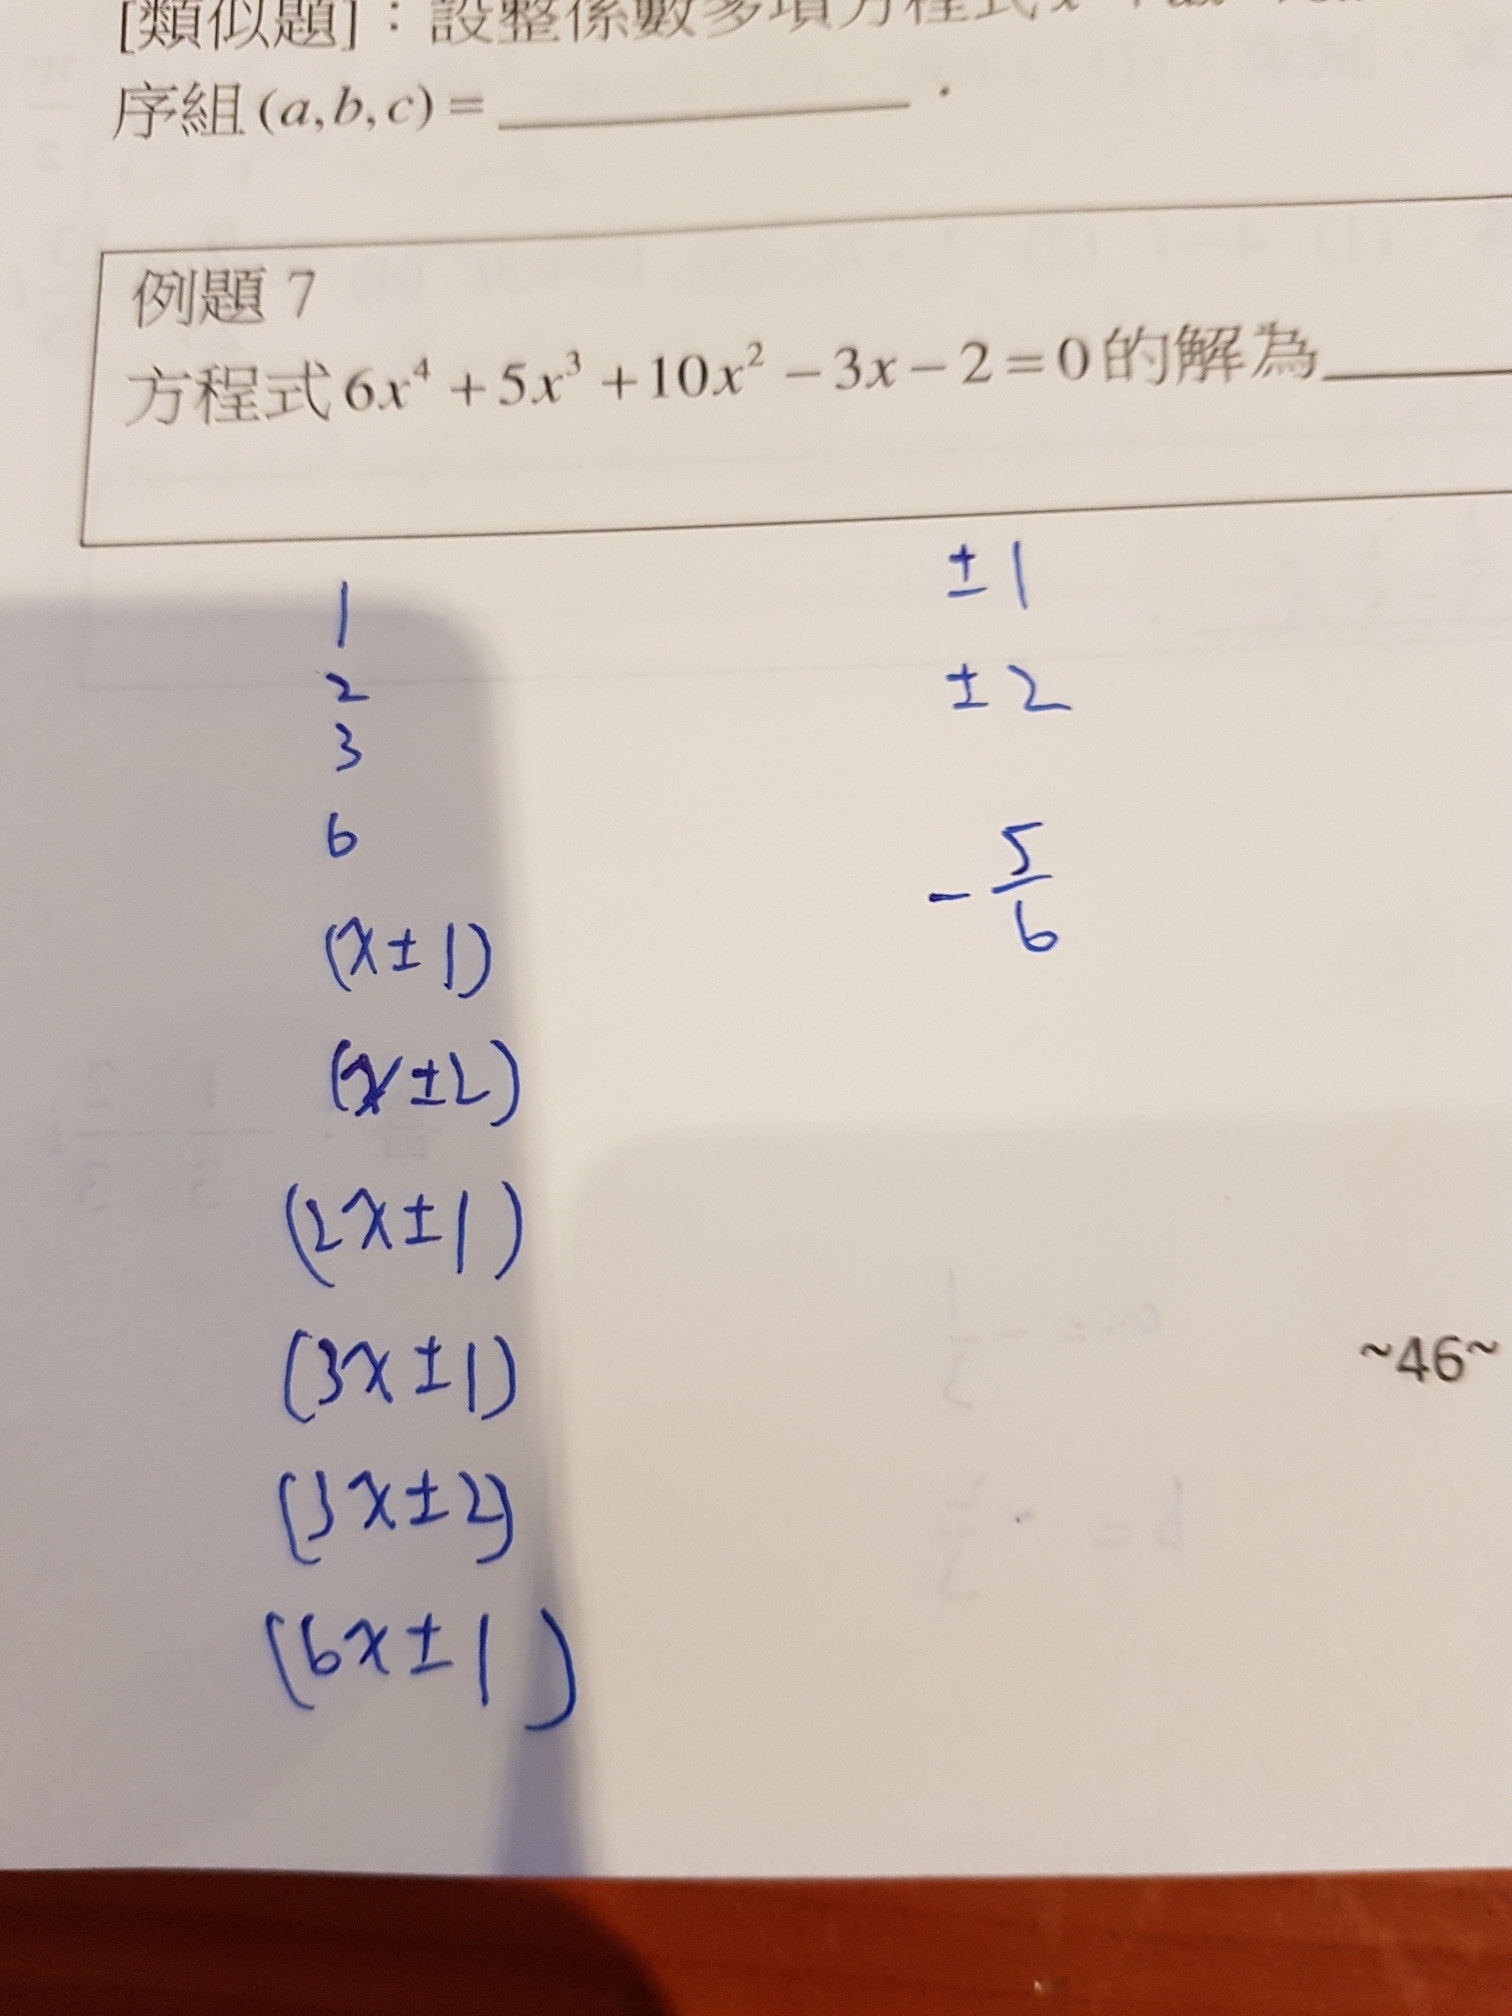 [類似題]：設整係數多項方程式
序組(a,b,c)=________.
例題 7
方程式6x⁴+5x³+10x²−3x−2=0的解為
1
2
3
6
(x±1)
(x±2)
(2x±1)
(3x±1)
(3x±2)
(6x±1)
±1
±2
-5/6
~46~